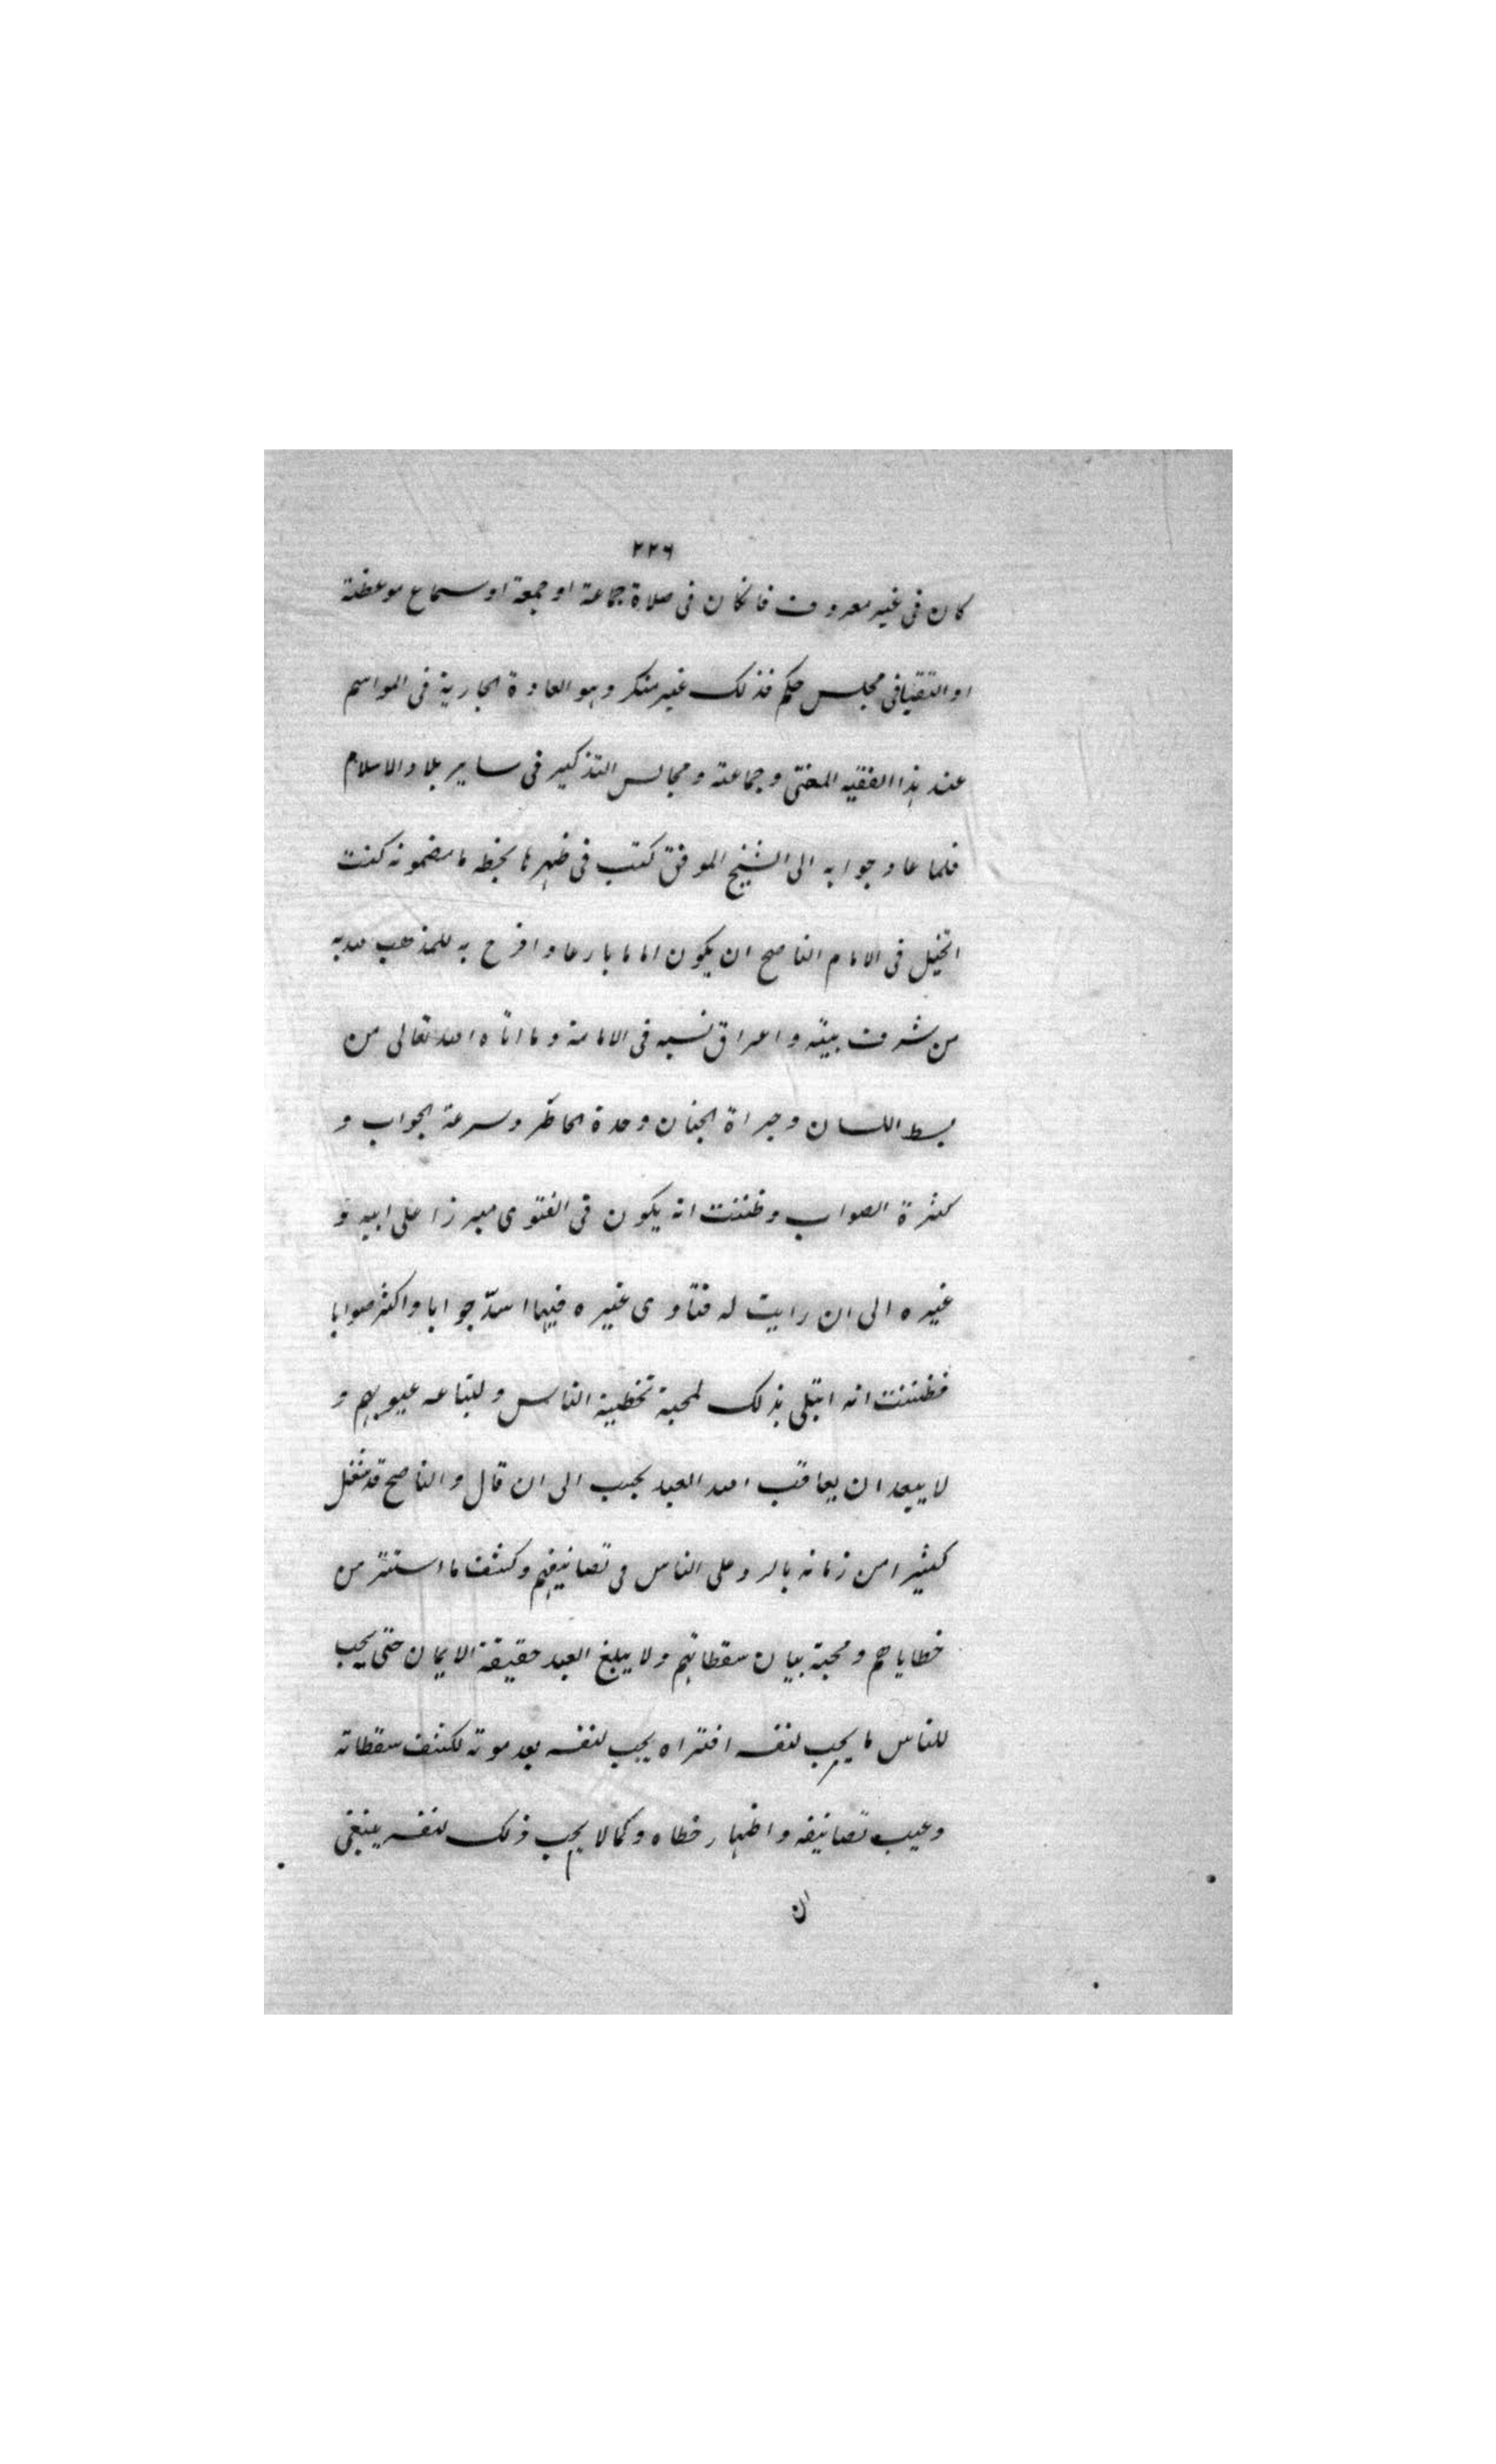 ٢٢٦
كان فى غير معروف فانكان فى صلاة جماعة او جمعة او سماع موعظة
او التقيا فى مجلس حكم فذلك غير منكر وهو العادة الجارية فى المواسم
عند هذا الفقيه المفتى وجماعته ومجالس التذكير فى ساير بلاد الاسلام
فلما عاد جوابه الى الشيخ الموفق كتب فى ظهرها بخطه ما مضمونه كنت
اتخيل فى الامام الناصح ان يكون اماما بارعا وافرح به للمذهب لما به
من شرف بيته واعراق نسبه فى الامامة وما اتاه الله تعالى من
بسط اللسان وجراة الجنان وحدة الخاطر وسرعة الجواب و
كثرة الصواب وظننت انه يكون فى الفتوى مبرزا على ابيه و
غيره الى ان رايت له فتاوى غيره فيها اسدّ جوابا واكثر صوابا
فظننت انه ابتلى بذلك لمحبة تخطية الناس واتباعه عيوبهم و
لا يبعد ان يعاقب الله العبد بجنب الى ان قال والناصح قد شغل
كثيرا من زمانه بالرد على الناس فى تصانيفهم وكشف ما استتر من
خطاياهم ومحبة بيان سقطاتهم ولا يبلغ العبد حقيقة الايمان حتى يحب
للناس ما يحب لنفسه افتراه يحب لنفسه بعد موته لكشف سقطاته
وعيب تصانيفه واظهار خطاه وكما لا يحب ذلك لنفسه ينبغى
ان